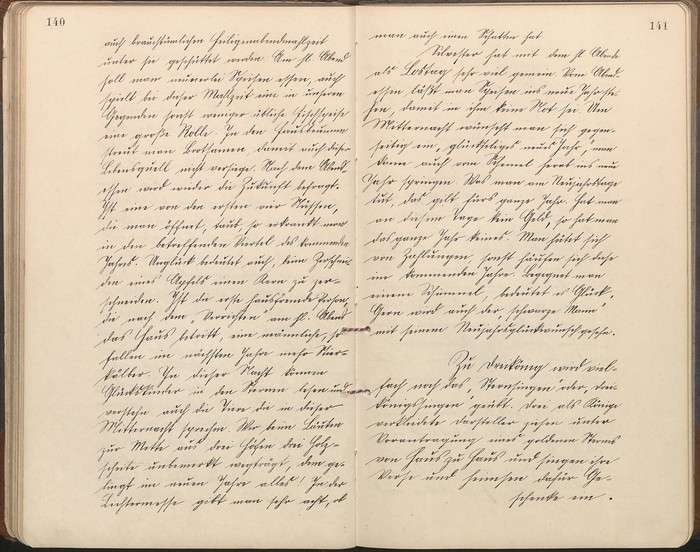 140
auch brauchtümlichen Heiligenabendmahlzeit
unter sie geschüttet worden. Am hl. Abend
soll man neunerlei Speisen essen, auch
spielt bei dieser Mahlzeit eine in unseren
Gegenden sonst weniger übliche Fischspeise
eine große Rolle. In den Hausbrunnen
streut man Brotsamen, damit auch dieser
Lebensquell nicht versiege. Nach dem Abend-
essen wird wieder die Zukunft befragt.
Ist eine von den ersten vier Nüssen,
die man öffnet, taub, so erkrankt man
in dem betreffenden Viertel des kommenden
Jahres. Unglück bedeutet auch, beim Zerschnei-
den eines Apfels einen Kern zu zer-
schneiden. Ist die erste hausfremde Person,
die nach dem Verrichten am hl. Abend
das Haus betritt, eine männliche, so
fallen im nächsten Jahre mehr Stier-
kälber. In dieser Nacht können
Glückskinder in den Sternen lesen und
verstehn auch die Tiere die in dieser
Mitternacht sprechen. Wer beim Läuten
zur Mette aus drei Höfen drei Holz-
scheite unbemerkt wegträgt, dem ge-
lingt im neuen Jahre alles! In der
Lichtermesse gibt man sehr acht, ob
141
man auch einen Schatten hat.
Silvester hat mit dem hl. Abende
als Lostag sehr viel gemein. Vom Abend-
essen läßt man Speisen ins neue Jahr ste-
hen, damit in ihm keine Not sei. Um
Mitternacht wünscht man sich gegen-
seitig ein "glückseliges neues Jahr", man
kann auch vom Schemel herab ins neue
Jahr springen. Was man am Neujahrstage
tut, das gilt fürs ganze Jahr. Hat man
an diesem Tage kein Geld, so hat man
das ganze Jahr keines. Man hütet sich
von Zahlungen, sonst häufen sich diese
im kommenden Jahre. Begegnet man
einem Schimmel, bedeutet es Glück.
Gern wird auch der "schwarze Mann"
mit seinem Neujahrsglückwunsch gesehn.
Zu Dreikönig wird viel-
fach noch das "Sternsingen" oder "Drei-
königsingen" geübt. Drei als Könige
verkleidete Darsteller ziehen unter
Vorantragung eines goldenen Sterns
von Haus zu Haus und singen ihre
Verse und heimsen dafür Ge-
schenke ein.